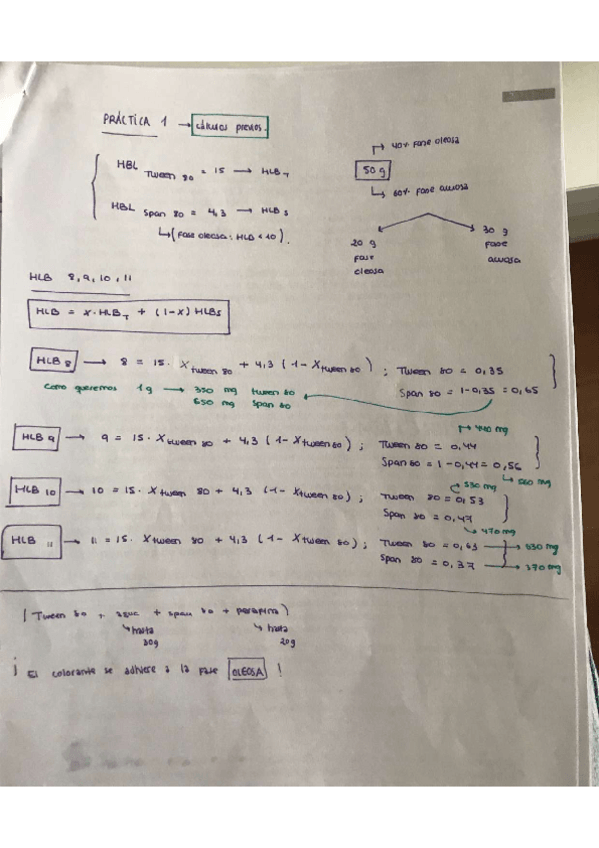 PRÁCTICA 1 → cálculos previos.
HBL Tween 80 = 15 → HLB T
HBL Span 80 = 4,3 → HLB S
↳ (Fase oleosa: HLB < 10).
↱ 40% fase oleosa
50 g
↳ 60% fase acuosa
20 g fase oleosa
30 g fase acuosa
HLB 8, 9, 10, 11
HLB = x · HLB T + (1-x) HLB S
HLB 8 → 8 = 15 · X tween 80 + 4,3 (1 - X tween 80) ; Tween 80 = 0,35
Span 80 = 1-0,35 = 0,65
Como queremos 1g → 350 mg tween 80
650 mg Span 80
↱ 440 mg
HLB 9 → 9 = 15 · X tween 80 + 4,3 (1 - X tween 80) ; Tween 80 = 0,44
Span 80 = 1-0,44 = 0,56
↳ 560 mg
530 mg
HLB 10 → 10 = 15 · X tween 80 + 4,3 (1 - X tween 80) ; Tween 80 = 0,53
Span 80 = 0,47
↳ 470 mg
HLB 11 → 11 = 15 · X tween 80 + 4,3 (1 - X tween 80) ; Tween 80 = 0,63 → 630 mg
Span 80 = 0,37 → 370 mg
(Tween 80 + agua + span 80 + parafina)
↳ hasta 30g
↳ hasta 20g
¡ El colorante se adhiere a la fase OLEOSA !